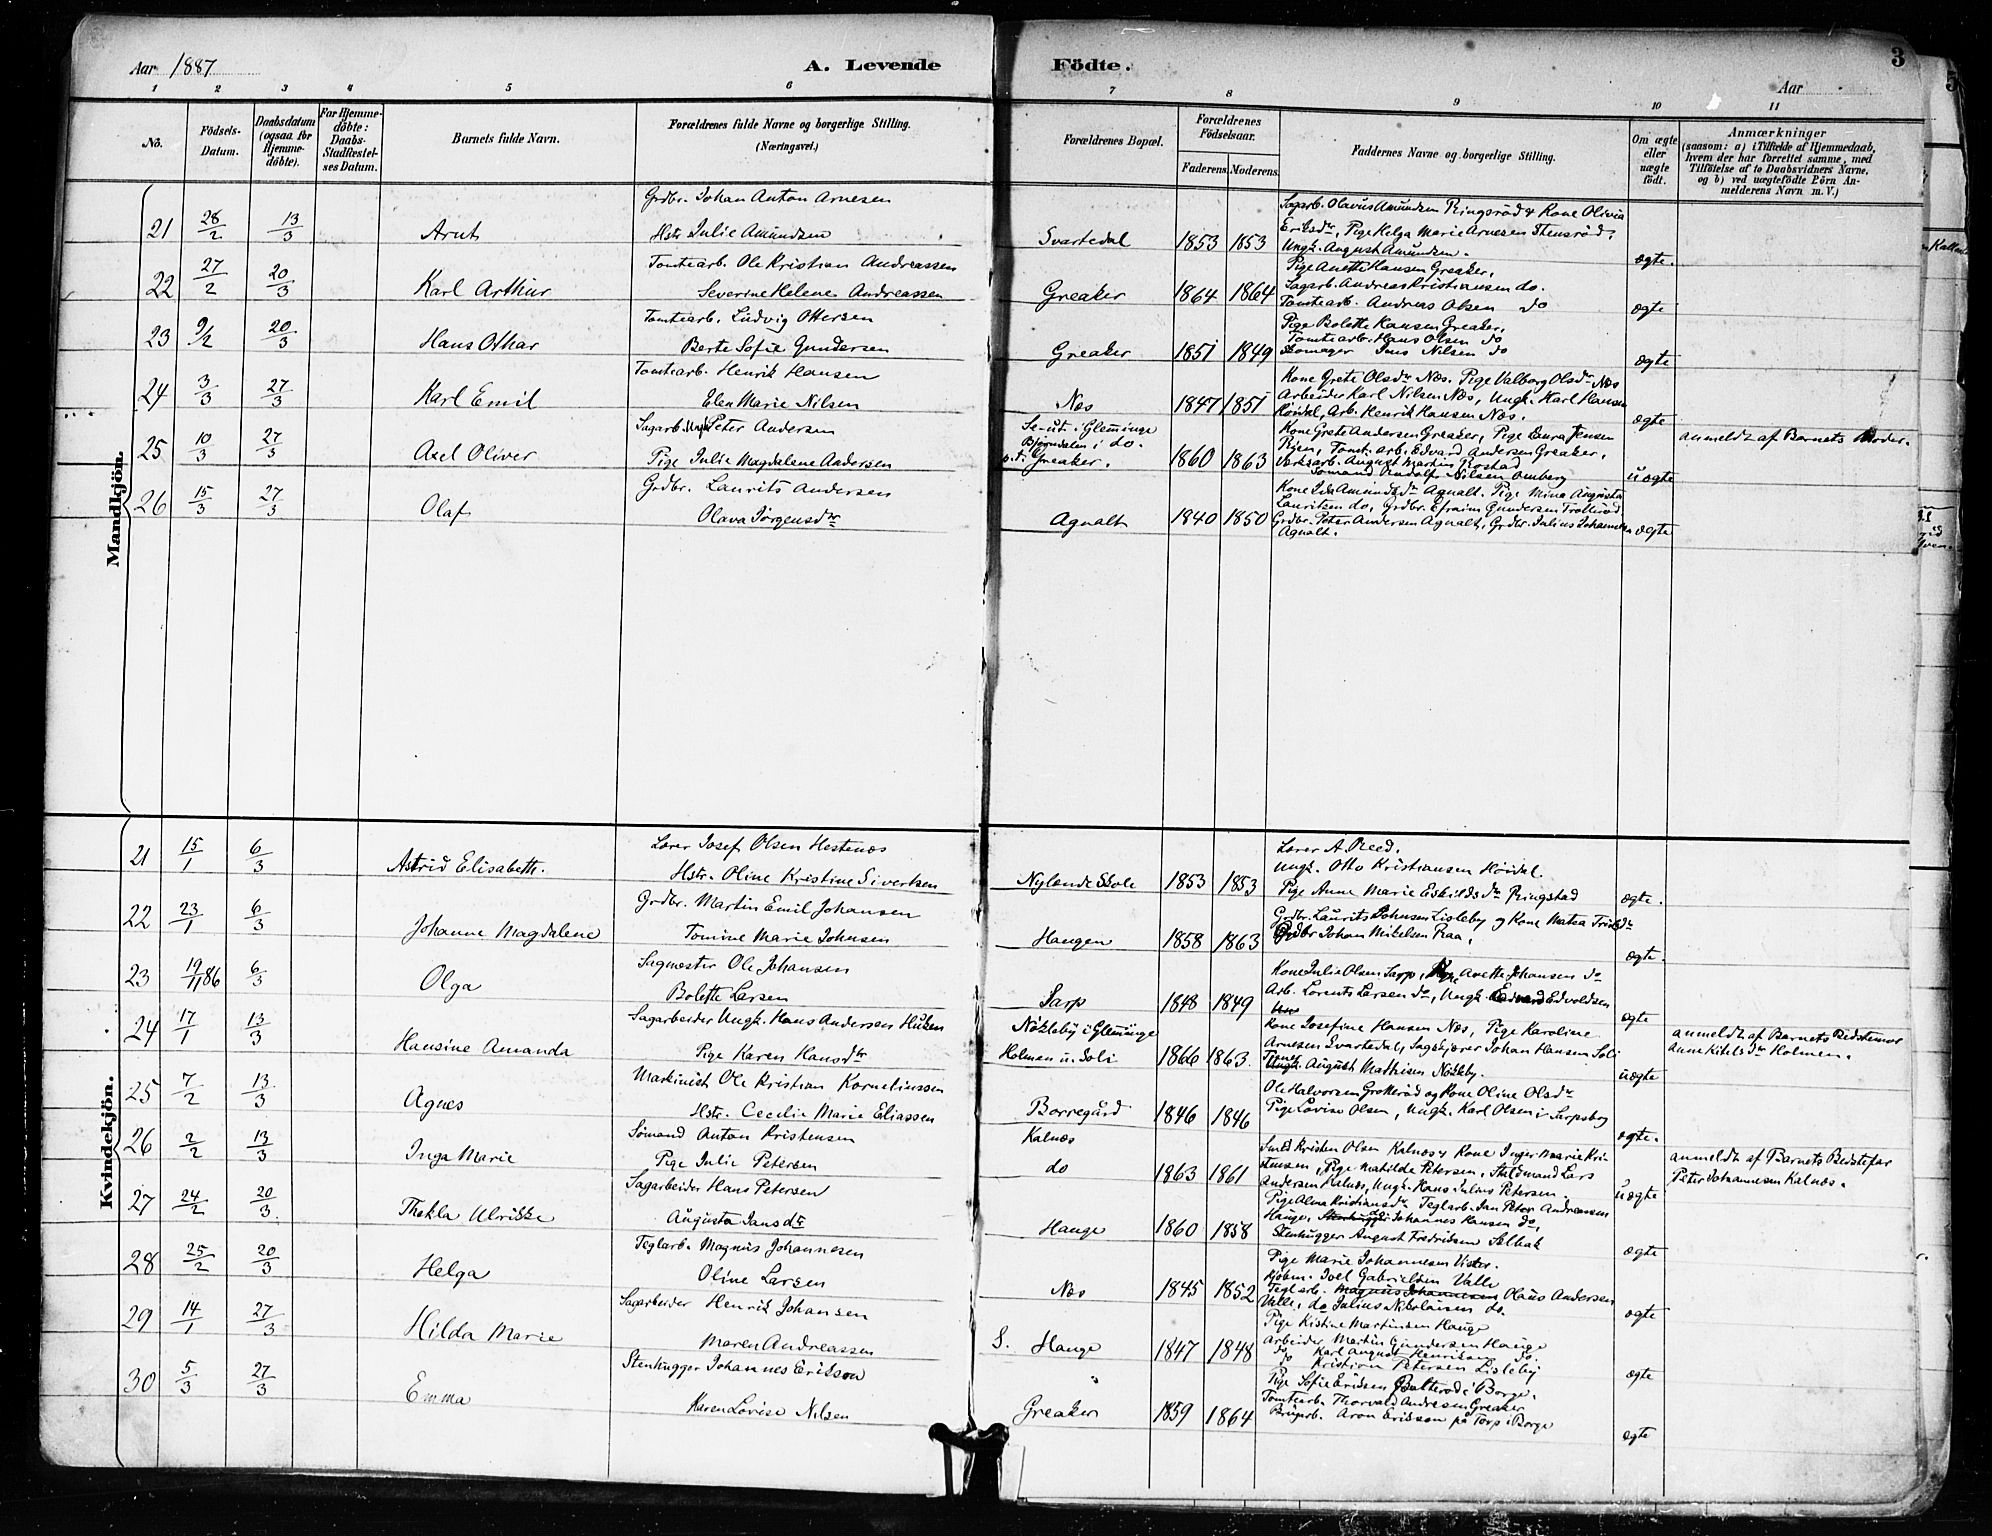 Aar 1887
A. Levende
Födte.
Aar
3
1 2 3 4 5 6 7 8 9 10 11
No.
Födsels-Datum.
Daabsdatum (ogsaa for Hjemme-döbte).
For Hjemme-döbte: Daabs-Stadfæstel-ses Datum.
Barnets fulde Navn.
Forældrenes fulde Navne og borgerlige Stilling. (Næringsvei.)
Forældrenes Bopæl.
Forældrenes Födselsaar.
Faderens. Moderens.
Faddernes Navne og borgerlige Stilling.
Om ægte eller uægte födt.
Anmærkninger (saasom: a) i Tilfælde af Hjemmedaab, hvem der har forrettet samme, med Tilföielse af to Daabsvidners Navne, og b) ved uægtefödte Börn An-melderens Navn m. V.)
Mandkjön.
21 28/2 13/3 Arnt
Grdbr. Johan Anton Arnesen
Hstr Julie Amundsen
Svartedal 1853 1853
Sagarb. Olavus Amundsen Ringsröd & Kone Olivia
Eriksdr, Pige Helga Marie Arnesen
Ungk. August Amundsen.
ægte.
22 27/2 20/3 Karl Arthur
Tomtearb. Ole Kristian Andreassen
Severine Helene Andreassen
Greaker 1864 1864
Pige Anette Hansen Greaker,
Sagarb. Andreas Kristiansen do.
Tomtearb. Andreas Olsen do
ægte
23 9/2 20/3 Hans Othar
Tomtearb. Ludvig Ottersen
Berte Sofie Gundersen
Greaker 1851 1849
Pige Bolette Hansen Greaker,
Tomtearb. Hans Olsen do
Skomager Jens Nilsen do
ægte
24 3/3 27/3 Karl Emil
Tomtearb. Henrik Hansen
Elen Marie Nilsen
Næs 1847 1851
Kone Grete Olsdr Næs. Pige Valborg Olsdr Næs
Arbeider Karl Nilsen Næs, Ungk. Karl Hansen
Röidal, Arb. Henrik Hansen Næs.
ægte
25 10/3 27/3 Axel Oliver
Sagarb. Ungk Peter Andersen
Pige Julie Magdalene Andersen
i Glemminge
Björndalen i do.
p.t. Greaker. 1860 1863
Kone Grete Andersen Greaker, Pige Laura Jensen
Tomt. arb. Edvard Andersen Greaker,
Verksarb. August Martin
Sömand Rudolf Nilsen Omberg
uægte
anmeldt af Barnets Moder.
26 15/3 27/3 Olaf
Grdbr. Laurits Andersen
Olava Jörgensdtr
Agnalt 1840 1850
Kone Ida Amundsdr Agnalt. Pige Mina Augusta
Lauritsen do, Grdbr. Efraim Gundersen
Grdbr. Peter Andersen Agnalt, Grdbr. Julius Johannesen
Agnalt.
ægte
Kvindekjön.
21 15/1 6/3 Astrid Elisabeth.
Lærer Josef Olsen Hestenæs
Hstr. Oline Kristine Sivertsen
Nylænde Skole 1853 1853
Lærer A. Reed.
Ungk. Otto Kristiansen Röidal.
Pige Anne Marie Eskildsdr Ringstad
ægte.
22 23/1 6/3 Johanne Magdalene
Grdbr. Martin Emil Johansen
Tomine Marie Johnsen
Haugen 1858 1863
Grdbr. Laurits Johnsen Lisleby og Kone Matea
Grdbr Johan Mikelsen Raa,
ægte.
23 19/11 86 6/3 Olga
Sagmester Ole Johansen
Bolette Larsen
Sarp 1848 1849
Kone Julie Olsen Sarp, Pige Anette Johansen do
Arb. Lorents Larsen do, Ungk. Edvard Edvoldsen
ægte
24 17/1 13/3 Hansine Amanda
Sagarbeider Ungk. Hans Andersen
Pige Karen Hansdtr
Nökleby i Glemminge
Holmen u. Soli 1866 1863.
Kone Josefine Hansen Næs, Pige Karoline
Arnesen Svartedal, Sagskjærer Johan Hansen Soli
August Mathisen Nökleby.
uægte
anmeldt af Barnets Bedstemor
Anne Kitelsdr Holmen.
25 7/2 13/3 Agnes
Maskinist Ole Kristian Korneliussen
Hstr. Cecilie Marie Eliassen
Borregård 1846 1846
Ole Halvorsen Grotteröd og Kone Oline Olsdr
Pige Lovise Olsen, Ungk. Karl Olsen i Sarpsborg
ægte.
26 2/2 13/3 Inga Marie
Sömand Anton Kristensen
Pige Julie Petersen
Kalnæs
do 1863 1861
Smed Kristen Olsen Kalnæs & Kone Inger Marie Kri-
stensen, Pige Matilde Petersen, Staldmand Lars
Andersen Kalnæs, Ungk. Hans Julius Petersen.
uægte
anmeldt af Barnets Bedstefar
Peter Johannesen Kalnæs.
27 24/2 20/3 Thekla Ulrikke
Sagarbeider Hans Petersen
Augusta Jansdtr
Hauge 1860 1858
Pige Alma Kristiansdr Teglarb. Jan Peter Andreasen
Hauge, Stenhugger do Johannes Hansen do,
Stenhugger August Fredriksen Selbak
ægte
28 25/2 20/3 Helga
Teglarb. Magnus Johannesen
Oline Larsen
Næs 1845 1852
Pige Marie Johannesen Vister.
Kjöbm. Joel Gabrielsen Valle
Teglarb. Magnus Johannesen Olaus Andersen
Valle, do Julius Nikolaisen do.
ægte
29 14/1 27/3 Hilda Marie
Sagarbeider Henrik Johansen
Maren Andreassen
S. Hauge 1847 1848
Pige Kistine Martinsen Hauge
Arbeider Martin Gundersen Hauge
do Karl August Henriksen do.
do Kristian Petersen Lisleby
ægte
30 5/3 27/3 Emma
Stenhugger Johannes Erikson
Karen Lovise Nilsen
Greaker 1859 1864
Pige Sofie Eriksen i Borge.
Tomtearb. Thorvald Andresen Greaker
Brugarb. Aron Erikson på Torp i Borge
ægte